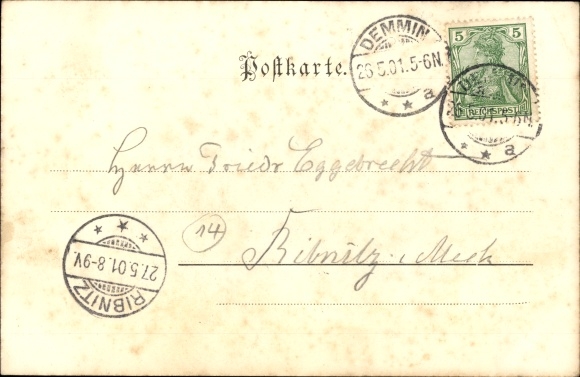 Postkarte.
DEMMIN
26.5.01.5-6N.
a
5 5
REICHSPOST
a
Herrn Friedr Eggebrecht
14
Ribnitz i. Meck
RIBNITZ
27.5.01.8-9V.